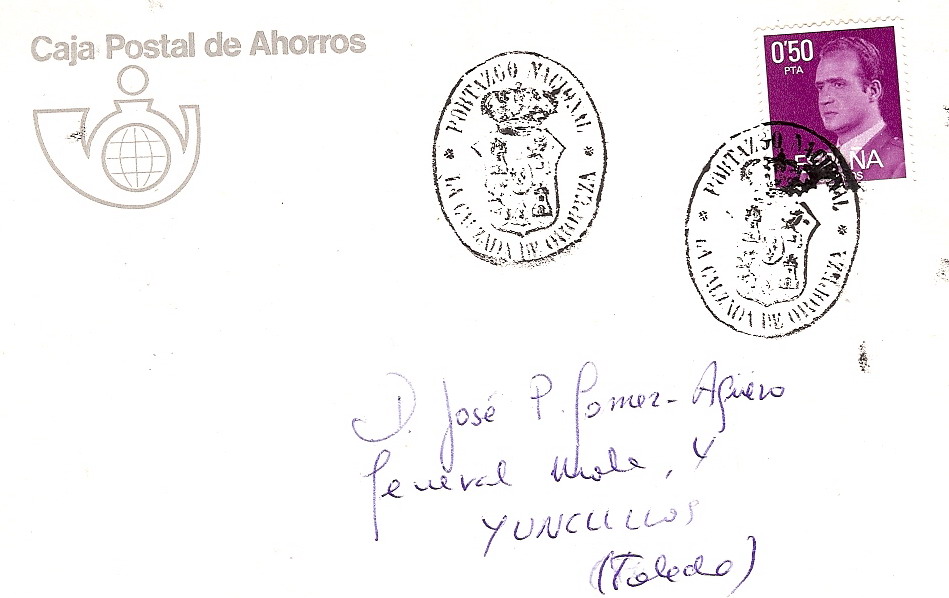 Caja Postal de Ahorros
0'50
PTA
ESPAÑA
PORTAZGO NACIONAL
* LA CALZADA DE OROPEZA *
PORTAZGO NACIONAL
* LA CALZADA DE OROPEZA *
D. José P. Gomez-Agüero
General Mola, 4
YUNCLILLOS
(Toledo)